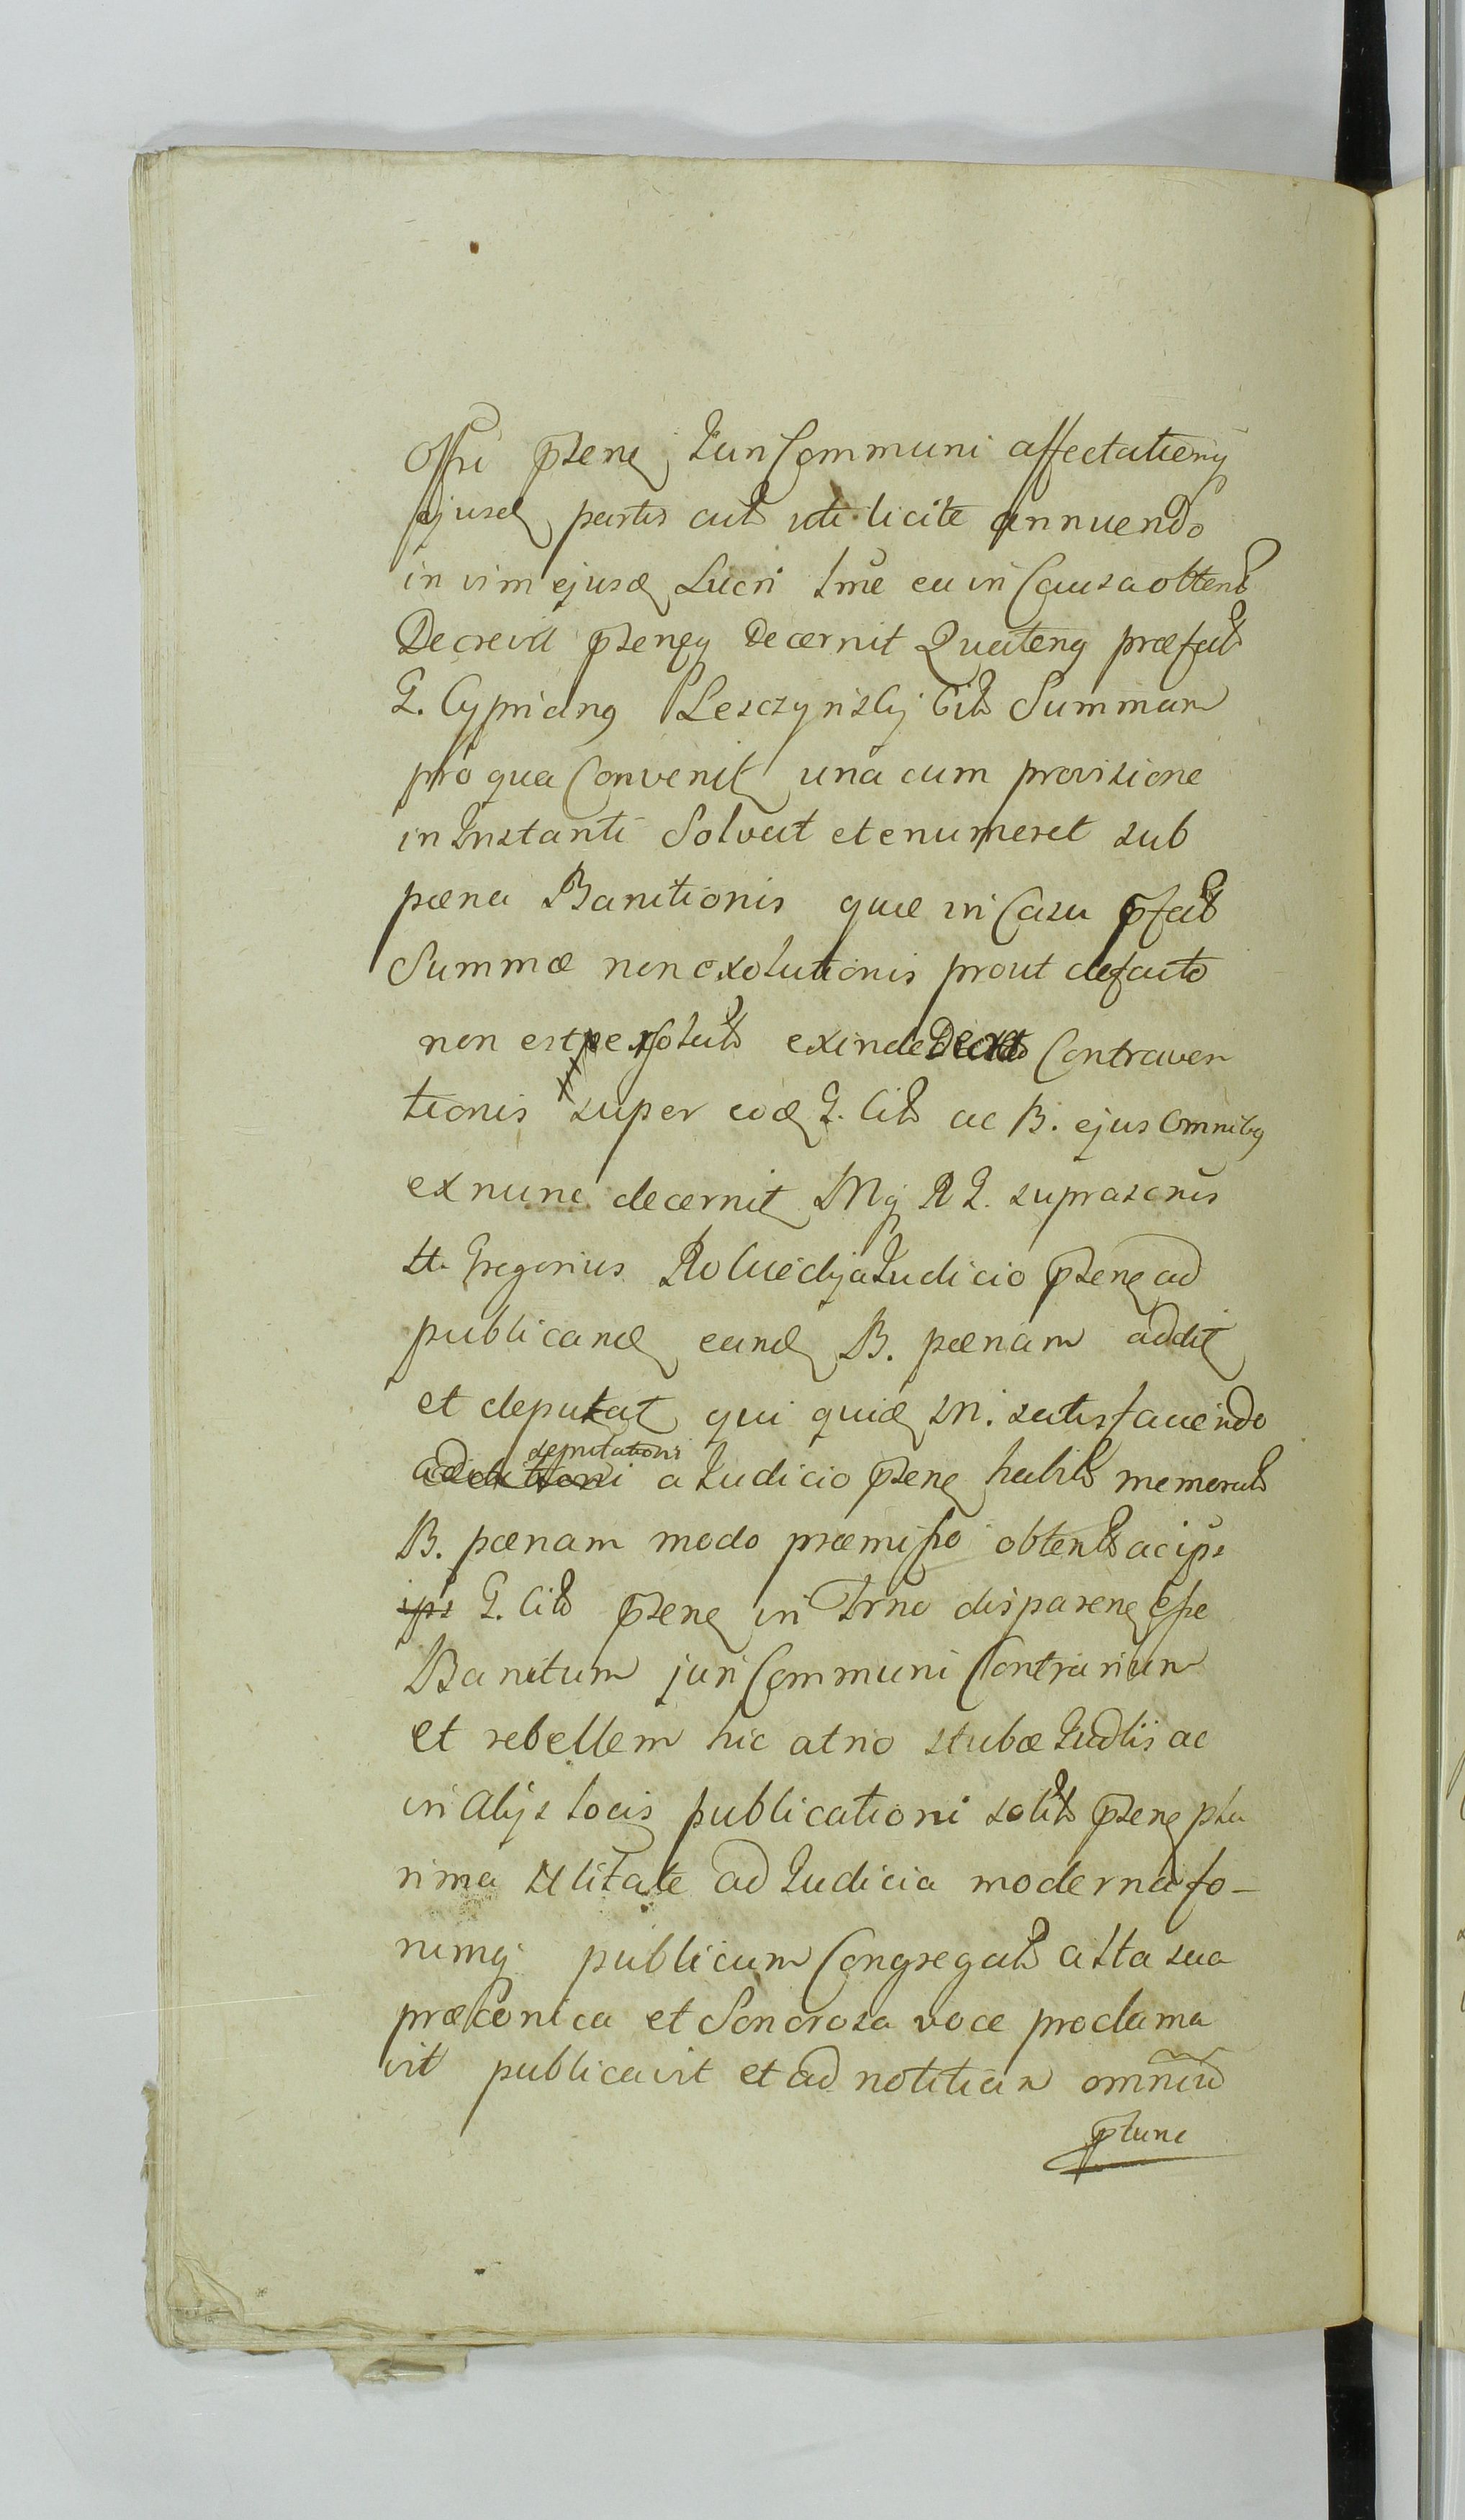 Offii pñsens Juri Communi affectationiq
ejusd partis cit uti licite annuendo
in vim ejusd Lucri tmē ea in Causa obtent
Decrevit pñsensq decernit Quatenq præfat
G. Cypriang Lesczynskj Cit Summam
pro qua Convenit una cum provisione
in Instanti Solvat et enumeret sub
pæna Banitionis quæ in Casu pfat
Summæ non exolutionis prout defacto
non est persolut exinde Contraven
tionis super eod G. Cit ac B. ejus omnibq
ex nunc decernit Mq R G. suprascrīs
Gregorius a Judicio pñsen ad
publicand eand B. pænam addit
et deputat qui quid M. satisfaciendo
deputationi
additioni a Judicio pñsen habit memorat
B. pænam modo præmisso obtent ac ips
ips G. Cit pñsen in Trño disparen esse
Banitum juri Communi Contrarium
et rebellem hic atrio stubæ Judlis ac
in alijs locis publicationi solit pñsen plu
rima Nlitate ad Judicia moderna fo-
rumq publicum Congregat alta sua
præconica et Sonorosa voce proclama
vit publicavit et ad notitiam omniu